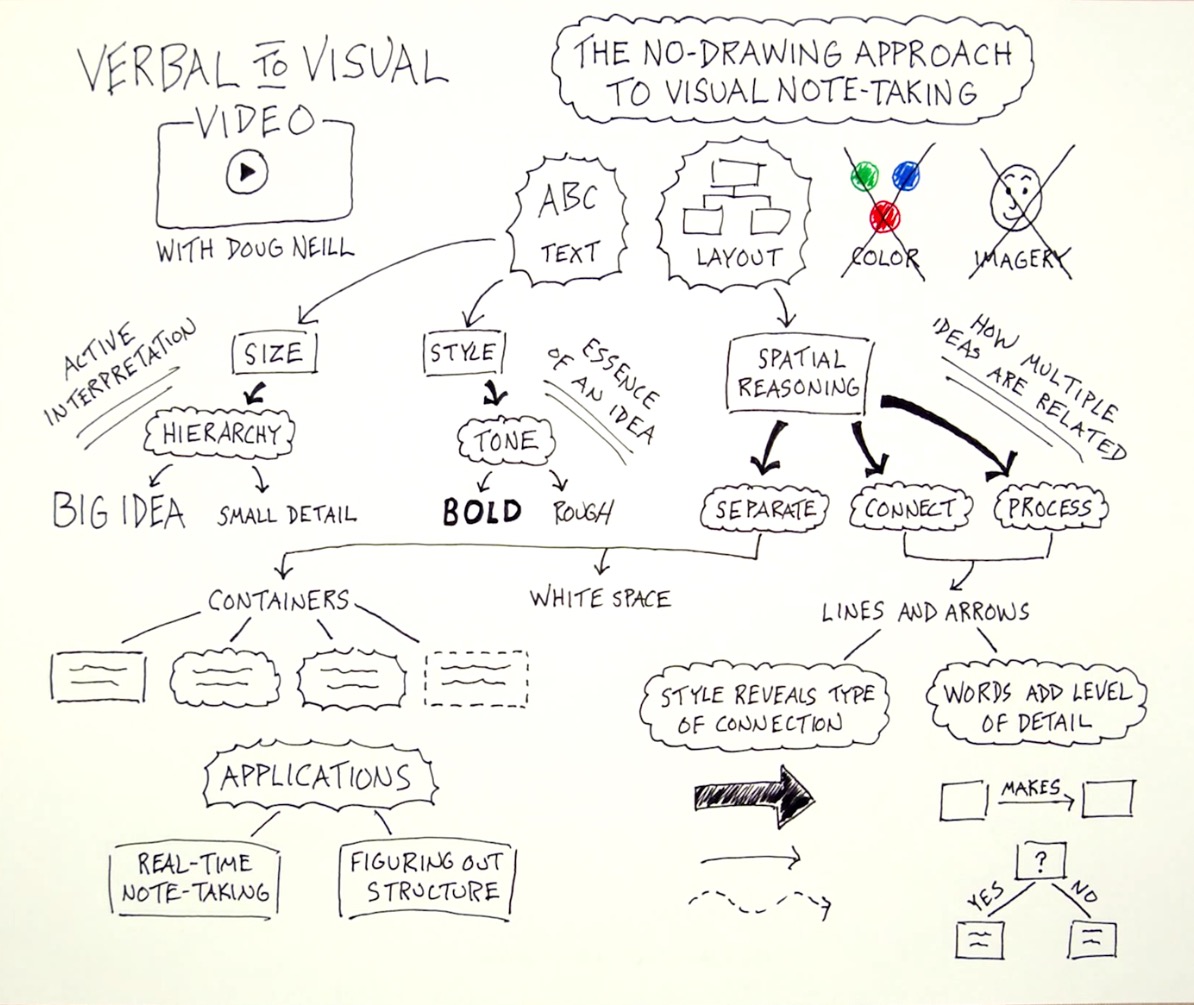 VERBAL TO VISUAL
VIDEO
WITH DOUG NEILL
THE NO-DRAWING APPROACH
TO VISUAL NOTE-TAKING
ABC
TEXT
LAYOUT
COLOR
IMAGERY
ACTIVE
INTERPRETATION
SIZE
HIERARCHY
BIG IDEA
SMALL DETAIL
STYLE
TONE
BOLD
ROUGH
ESSENCE
OF AN IDEA
SPATIAL
REASONING
HOW MULTIPLE
IDEAS ARE RELATED
SEPARATE
CONNECT
PROCESS
CONTAINERS
WHITE SPACE
LINES AND ARROWS
STYLE REVEALS TYPE
OF CONNECTION
WORDS ADD LEVEL
OF DETAIL
MAKES
?
YES
NO
APPLICATIONS
REAL-TIME
NOTE-TAKING
FIGURING OUT
STRUCTURE